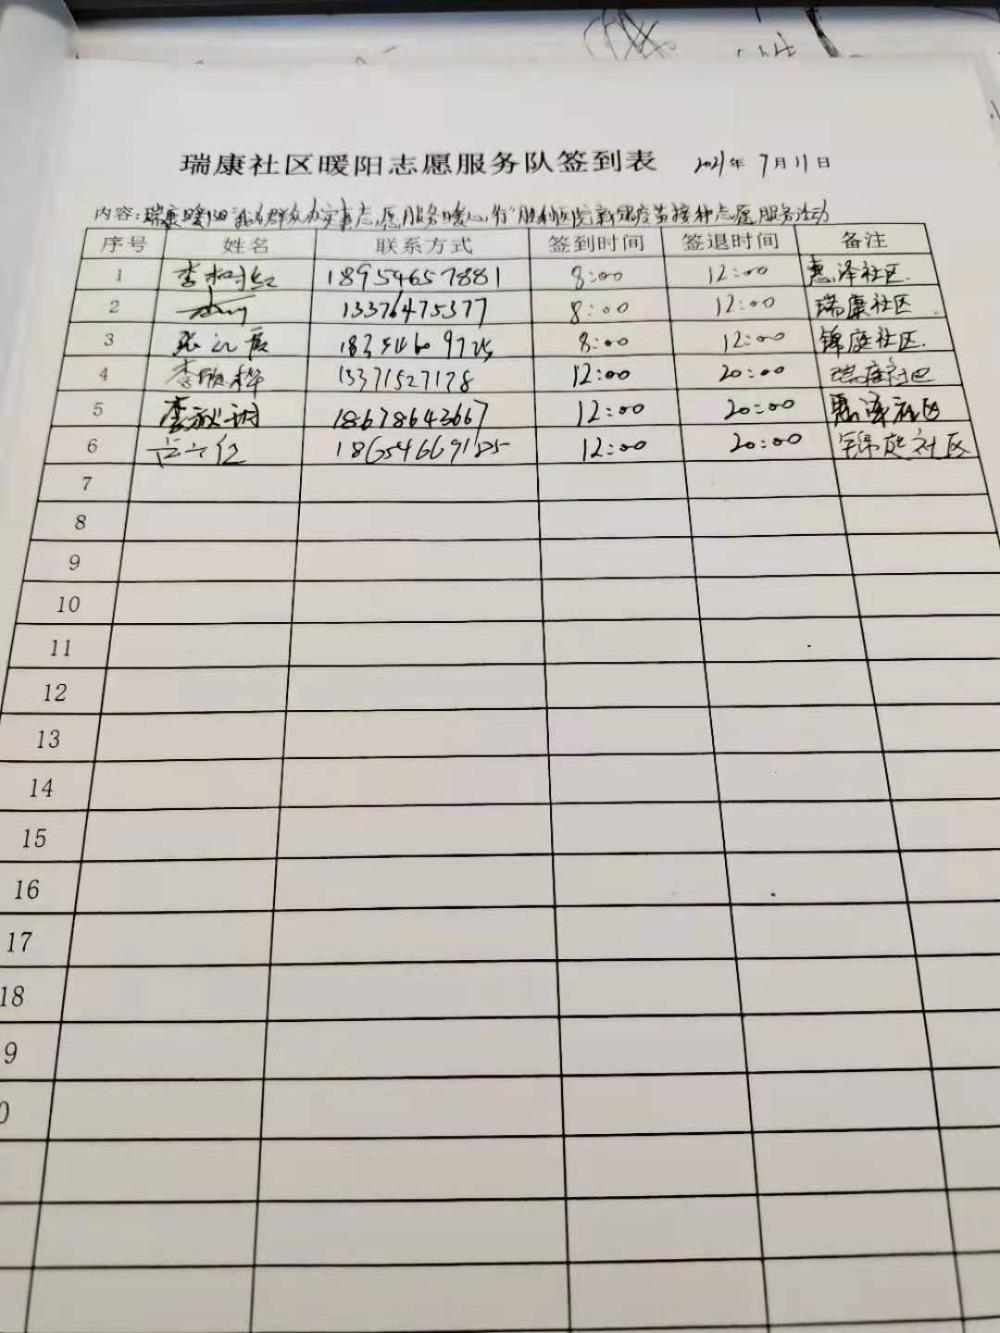 瑞康社区暖阳志愿服务队签到表 2021年7月11日
内容:瑞康暖阳"我为群众办实事志愿服务暖心行"胜利医院新冠疫苗接种志愿服务活动
序号 姓名 联系方式 签到时间 签退时间 备注
1 18954657881 8:00 12:00 惠泽社区.
2 13376475377 8:00 12:00 瑞康社区
3 8:00 12:00 锦庭社区.
4 李 13371527178 12:00 20:00 瑞康社区
5 李秋 18678643667 12:00 20:00 惠泽社区
6 18654669125 12:00 20:00 锦庭社区
7
8
9
10
11
12
13
14
15
16
17
18
9
0